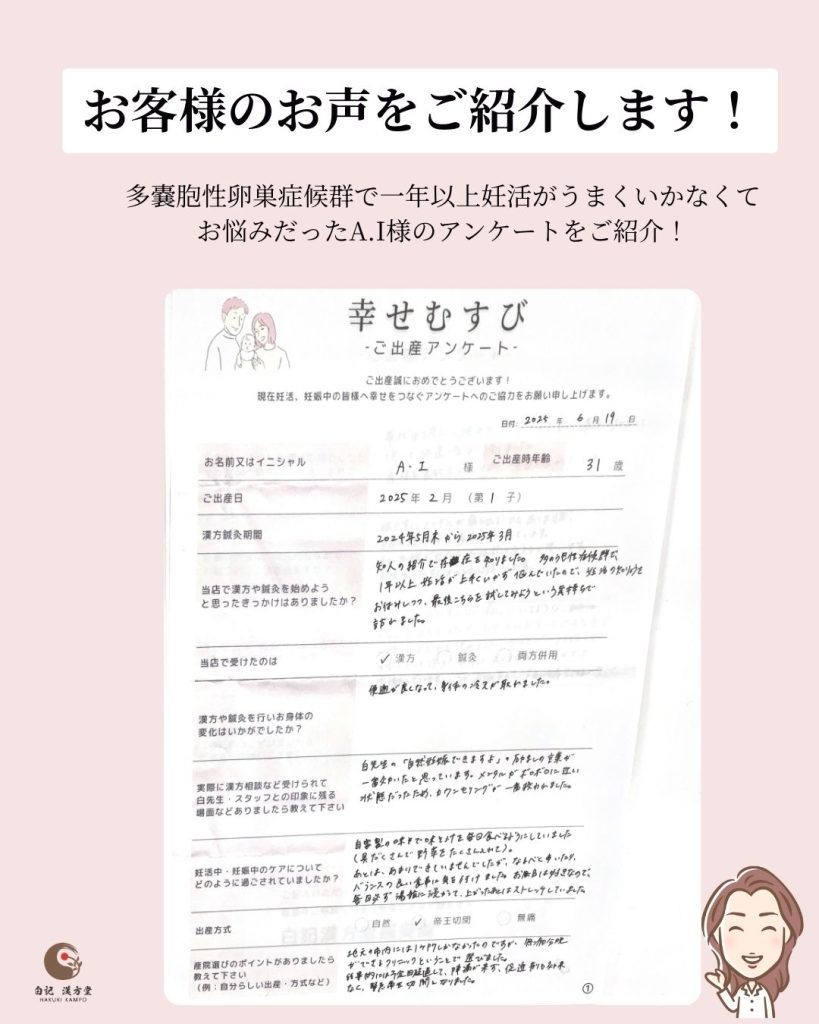 お客様のお声をご紹介します！
多嚢胞性卵巣症候群で一年以上妊活がうまくいかなくて
お悩みだったA.I様のアンケートをご紹介！
幸せむすび
-ご出産アンケート-
ご出産誠におめでとうございます！
現在妊活、妊娠中の皆様へ幸せをつなぐアンケートへのご協力をお願い申し上げます。
日付: 2025 年 6 月 19 日
お名前又はイニシャル A・I 様 ご出産時年齢 31 歳
ご出産日 2025 年 2 月 （第 1 子）
漢方鍼灸期間 2024年5月末 から 2025年3月
当店で漢方や鍼灸を始めよう
と思ったきっかけはありましたか？
知人の紹介で存在を知りました。多のう胞性症候群で、
1年以上 妊活が上手くいかず 悩んでいたので、妊活
お休みしつつ、最後こちらを試してみようという気持ちで
訪れました。
当店で受けたのは ✓ 漢方 鍼灸 両方併用
漢方や鍼灸を行いお身体の
変化はいかがでしたか？
便通が良くなって、身体の冷えが取れました。
実際に漢方相談など受けられて
白先生・スタッフとの印象に残る
場面などありましたら教えて下さい
白先生の「自然妊娠できますよ」の励ましの言葉が
一番効いたと思っています。メンタルがボロボロに近い
状態だったため、カウンセリングが一番救われました。
妊活中・妊娠中のケアについて
どのように過ごされていましたか？
自家製の味噌で味噌汁を毎日食べるようにしていました
（具だくさんで野菜をたくさん入れて）。
あとは、あまりできていませんでしたが、なるべく歩いたり、
バランスの良い食事に気を付けました。お風呂は好きなので、
毎日必ず 湯船に浸かって、上がった後はストレッチしていました。
出産方式 自然 ✓ 帝王切開 無痛
産院選びのポイントがありましたら
教えて下さい
（例：自分らしい出産・方式など）
地元の市内には1ヶ所しかなかったのですが、
ができるクリニックということで 選びました。
結果的には予定日超過して、陣痛が来ず、促進剤も効果
なく、緊急帝王切開しなりました。
①
白记 漢方堂
HAKUKI KAMPO